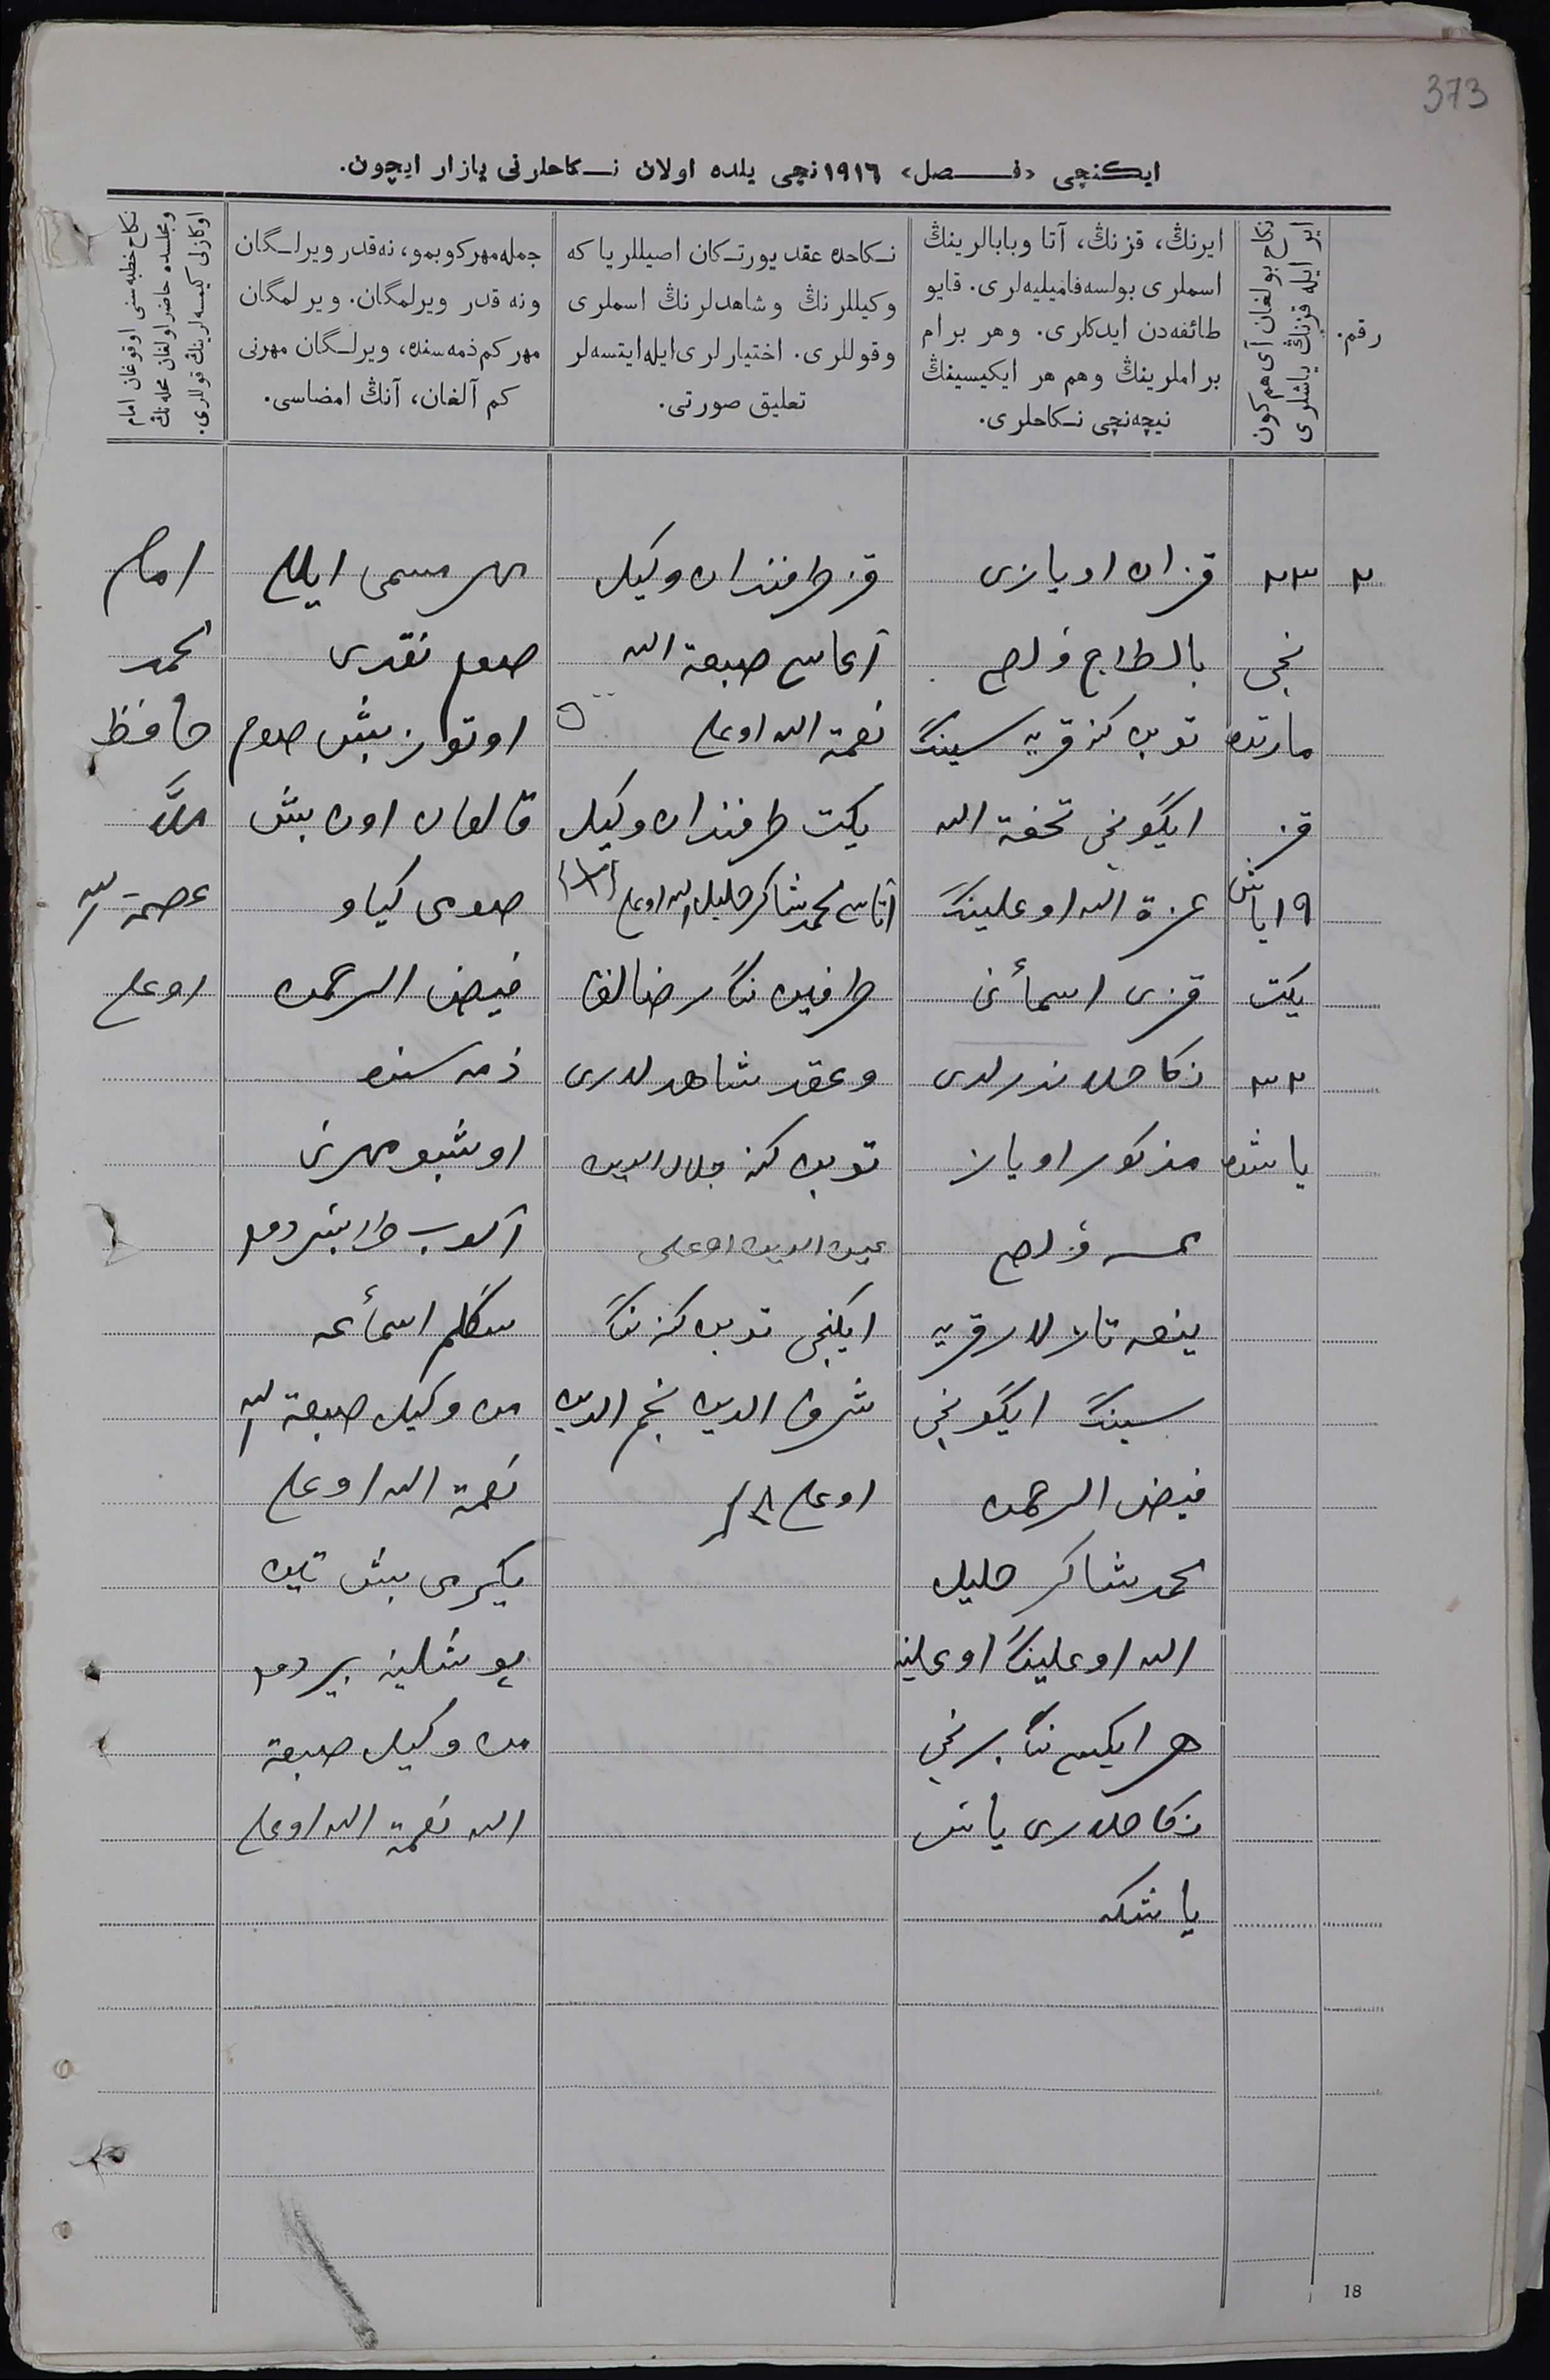 373
ایكنچی «فصل» ١٩١٦نچی یلده اولان نكاحلرنی یازار ایچون.
رقم.
نكاح بولغان آی هم كون
ایر ایله قزنڭ یاشلری
ایرنڭ، قزنڭ، آتا وبابالرینڭ
اسملری بولسه فامیلیه‌لری. قایو
طائفه‌دن ایدكلری. وهر برام
براملرینڭ وهم هر ایكیسینڭ
نیچه‌نچی نكاحلری.
نكاحده عقد یورتكان اصیللریا كه
وكیللرنڭ وشاهدلرنڭ اسملری
وقوللری. اختیارلری‌ایله‌ایتسه‌لر
تعلیق صورتی.
جمله‌مهر كوبمو، نه‌قدر ویرلگان
ونه قدر ویرلمگان. ویرلمگان
مهر كم ذمه‌سنده، ویرلگان مهرنی
كم آلغان، آنڭ امضاسی.
نكاح خطبه‌سنی اوقوغان امام
ومجلسده حاضر اولغان محله‌نڭ
اوكازلی كیمسه‌لرینڭ قوللری.
٢
٢٣
نچی
مارتده
قز
١٩ یاش
یكت
٢٣
یاشده
قزان اویازی
بالطاچ ولص
توبن كنه قریه سینڭ
ایگونچی تحفة الله
عزة الله اوغلینڭ
قزی اسمأنی
نكاحلاندرلدی
مذكور اویاز
ولص
قریه
سینڭ ایگونچی
فیض الرحمن
محمد شاكر خلیل
الله اوغلینڭ اوغلینه
هر ایكیسی نڭ برنچی
نكاحلاری یاش
یاشكه
قز طرفندان وكیل
آغاسی صبغة الله
نعمة الله اوغلی
یكت طرفندان وكیل
آتاسی محمد شاكر خلیل الله اوغلی
طرفین نڭ رضالغی
وعقد شاهدلاری
توبن كنه جلال الدین
عین الدین اوغلی
ایكنچی توبن كنه نڭ
شرف الدین نجم الدین
اوغلی
مهر مسمی ایللی
صوم نقدی
اوتوز بش صوم
قالغان اون بش
صومی كیاو
فیض الرحمن
ذمه سنده
اوشبو مهرنی
آلوب طابشردم
سڭلم اسمأغه
من وكیل صبغة الله
نعمة الله اوغلی
یگرمی بش تین
پوشلینه بیردم
من وكیل صبغة
الله نعمة الله اوغلی
امام
محمد
حافظ
ملا
عصمة الله
اوغلی
18